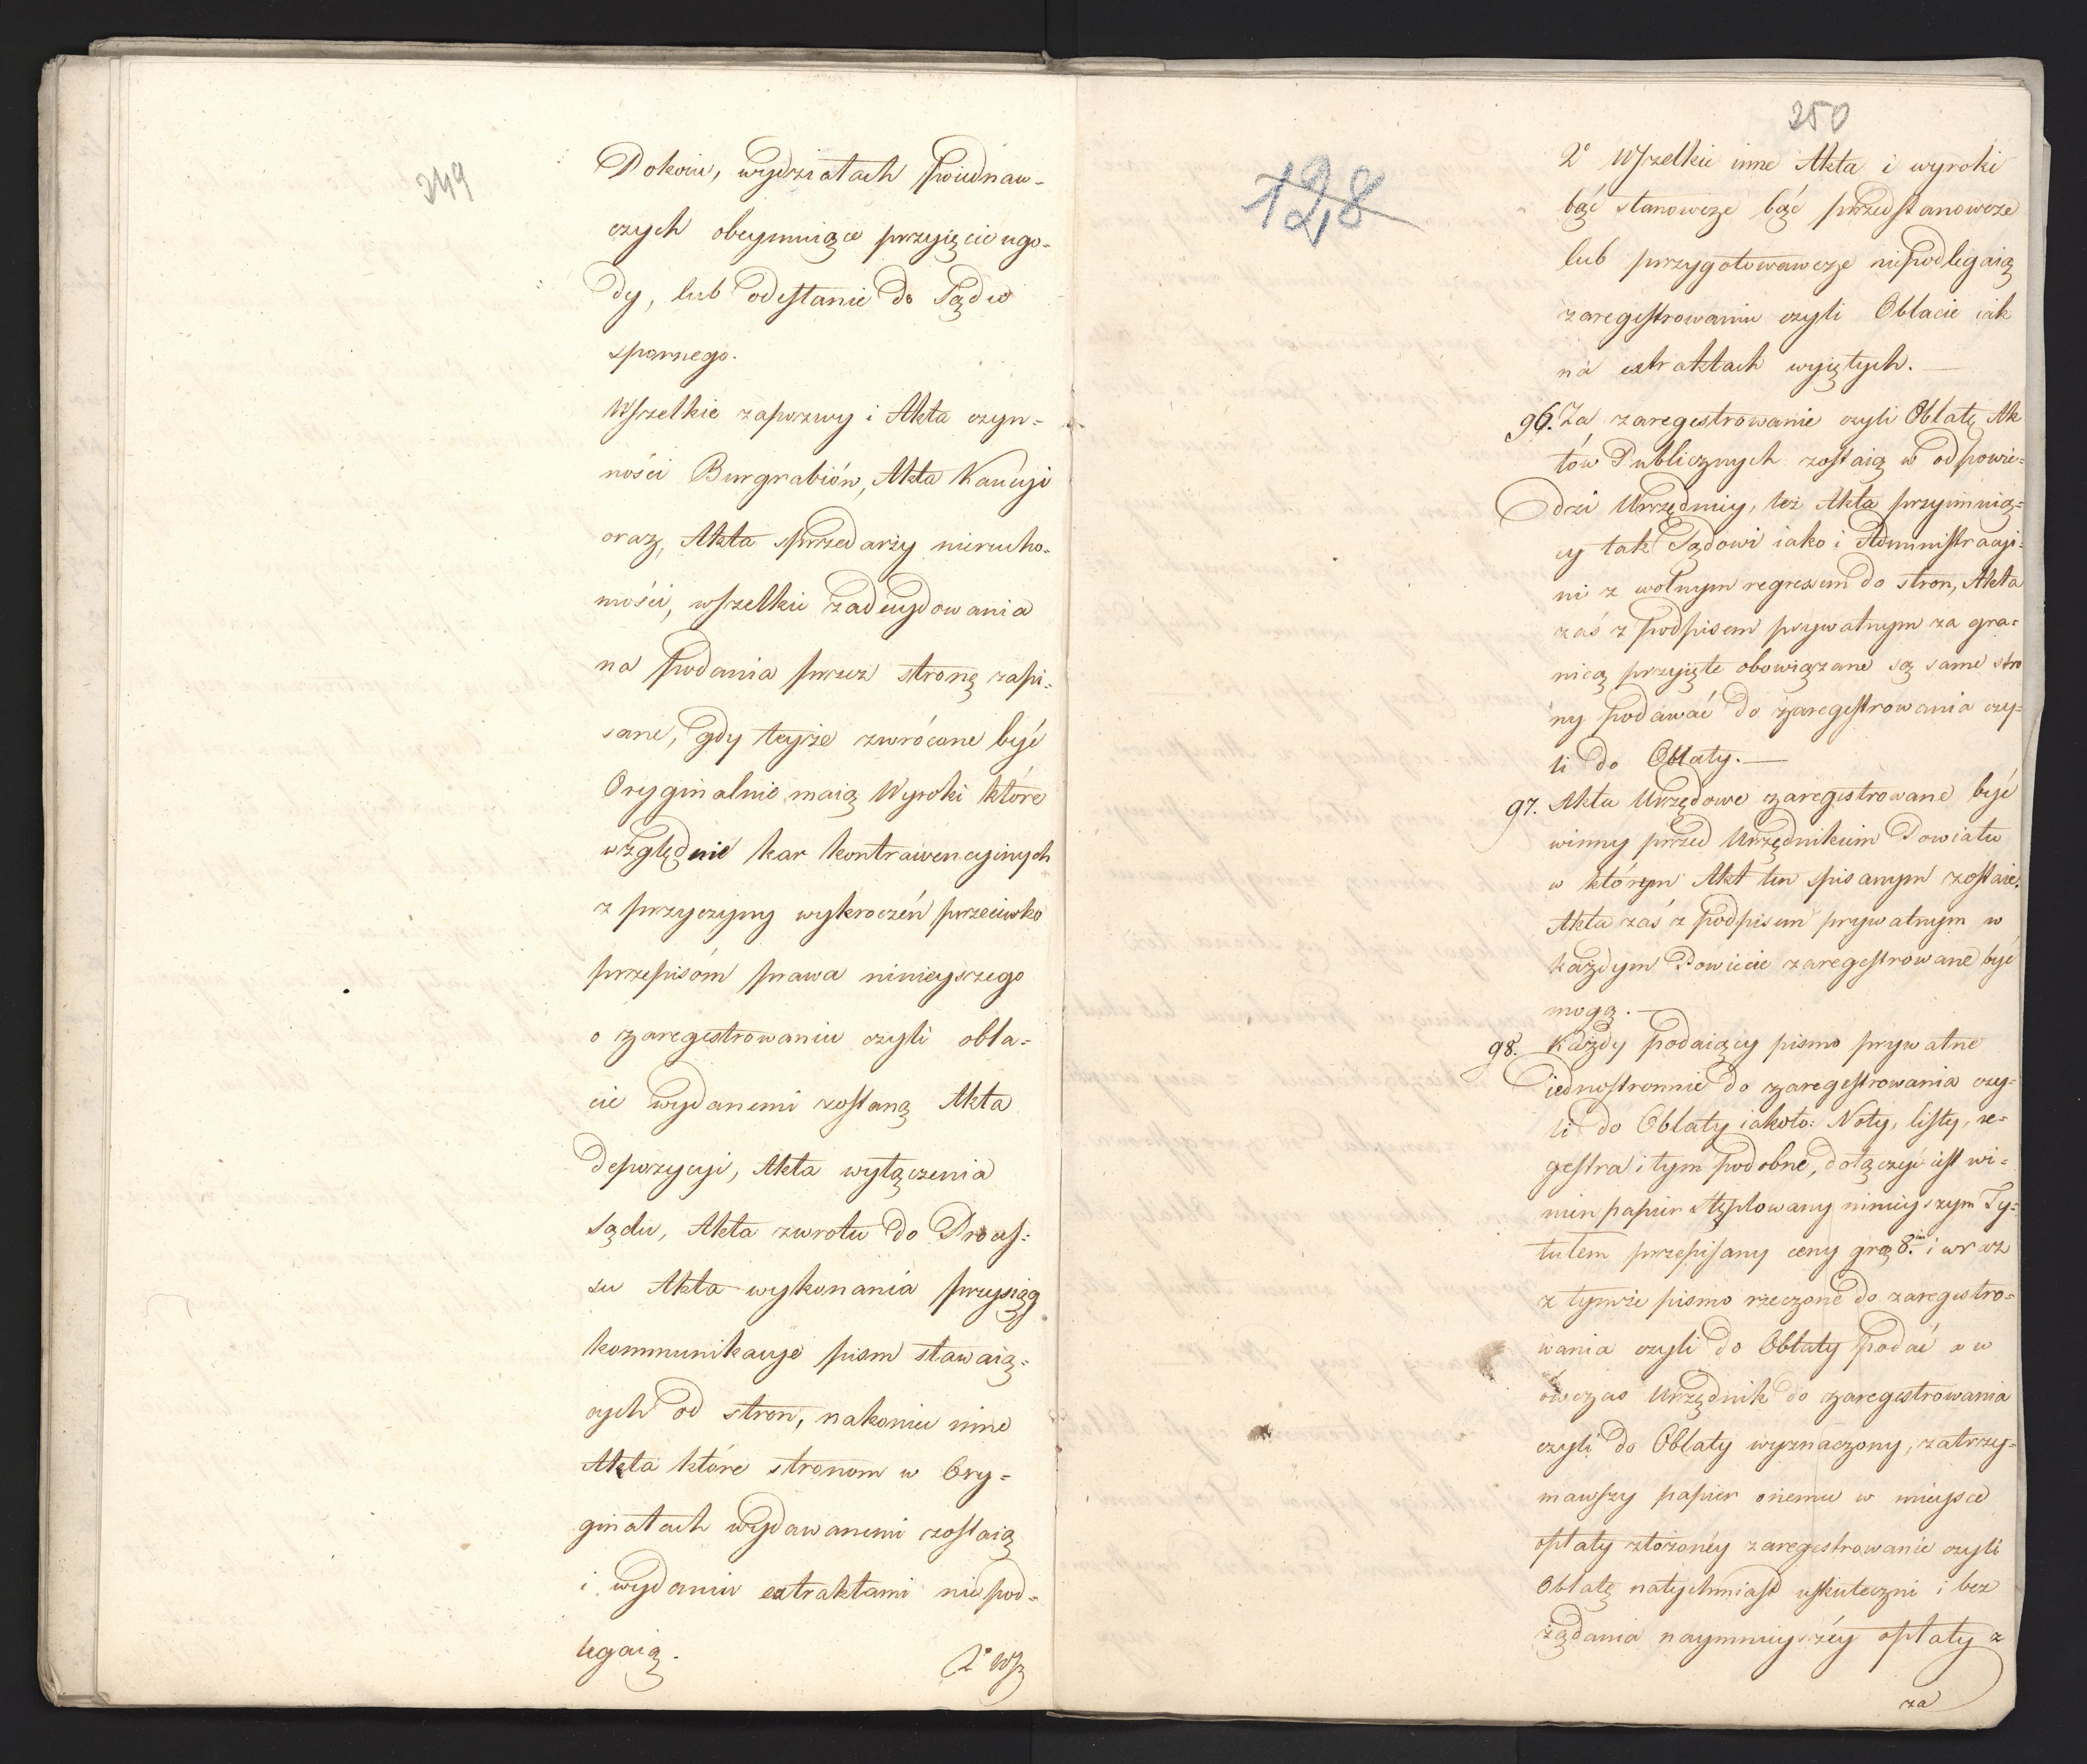 249
Dokoiu, wydziałach Poiednaw-
czych obeymuiące przyięcie ugo-
dy, lub odesłanie do Sądu
spornego.
Wszelkie zapozwy i Akta czyn-
ności Burgrabiów, Akta Kaucyi
oraz, Akta sprzedaży nierucho-
mości, wszelkie zadecydowania
na podania przez stronę zapi-
sane, gdy teyże zwrócone być
Oryginalnie maią Wyroki które
względnie kar kontrawencyinych
z przyczyny wykroczeń przeciwko
przepisóm prawa ninieyszego
o zaregestrowaniu czyli obla-
cie wydanemi zostaną Akta
depozycyi, Akta wyłączenia
Sądu, Akta zwrotu do Proces-
su Akta wykonania przysiąg
kommunikacye pism stawaią-
cych od stron, nakoniec inne
Akta które stronom w Ory-
ginałach wydawanemi zostaią
i wydaniu extraktami nie pod-
legaią.
2° Wsz
250
128
2° Wszelkie inne Akta i wyroki
bąć stanowcze bąć przedstanowcze
lub przygotowawcze niepodlegaią
zaregestrowaniu czyli Oblacie iak
na extraktach wyiętych. —
96. Za zaregestrowanie czyli Oblatę Ak
tów Publicznych zostaią w odpowie-
dzi Urzędnicy, też Akta przyimuią-
cy tak Sądowi iako i Administracyi-
ni z wolnym regresem do stron, Akta
zaś z podpisem prywatnym za gra-
nicą przyięte obowiązane są same stro
ny podawać do zaregestrowania czy-
li do Oblaty. —
97. Akta Urzędowe zaregestrowane być
winny przed Urzędnikiem Powiatu
w którym Akt ten spisanym zostaie.
Akta zaś z podpisem prywatnym w
każdym Powiecie zaregestrowane być
mogą. —
98. Każdy podaiący pismo prywatne
iednostronnie do zaregestrowania czy-
li do Oblaty iakoto: Noty, listy, re-
gestra i tym podobne, dołączyć iest wi-
nien papier stęplowany ninieyszym Ty-
tułem przepisany ceny gro 8. i wraz
z tymże pismo rzeczone do zaregestro-
wania czyli do Oblaty podać a w
ówczas Urzędnik do zaregestrowania
czyli do Oblaty wyznaczony, zatrzy-
mawszy papier onemu w mieysce
opłaty złożonéy zaregestrowanie czyli
Oblatę natychmiast uskuteczni i bez
żądania naymnieyszéy opłaty z
za